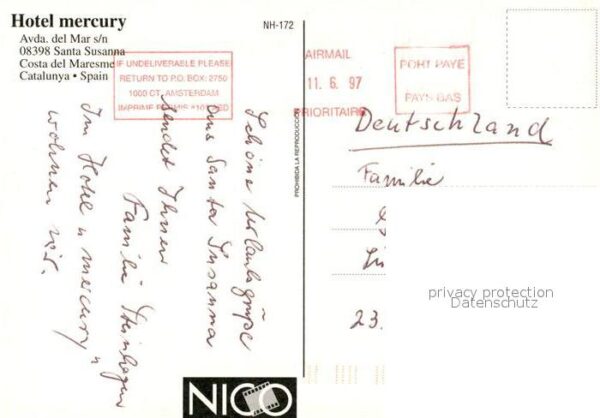 Hotel mercury
Avda. del Mar s/n
08398 Santa Susanna
Costa del Maresme
Catalunya • Spain
NH-172
IF UNDELIVERABLE PLEASE
RETURN TO P.O. BOX: 2750
1000 CT, AMSTERDAM
AIRMAIL
11. 6. 97
PRIORITAIRE
PORT PAYE
PAYS BAS
PROHIBIDA LA REPRODUCCION
Schöne Urlaubsgrüße
aus Santa Susanna
sendet Ihnen
Familie
Im Hotel "mercury"
wohnen wir.
Deutschland
Familie
23.
privacy protection
Datenschutz
NICO